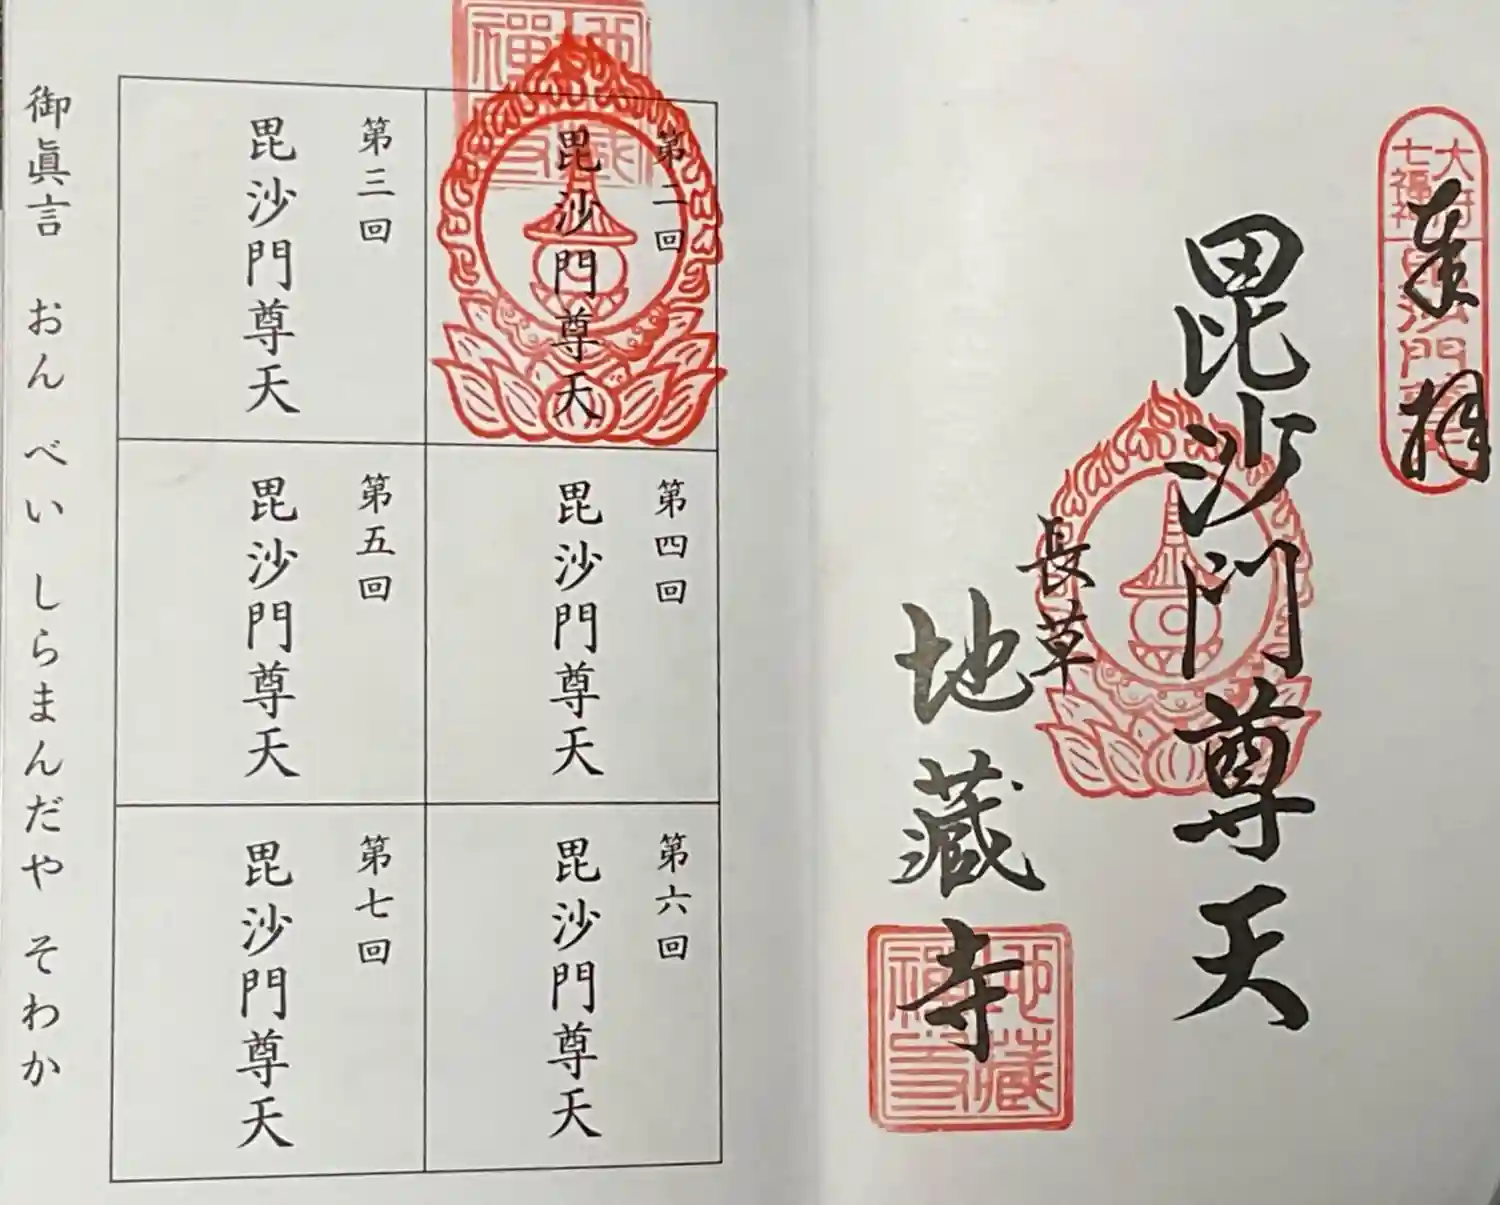 大府
七福神
毘沙門尊天
奉拝
毘沙門尊天
長草
地蔵寺
地蔵
禅寺
第二回
毘沙門尊天
地蔵
禪寺
第三回
毘沙門尊天
第四回
毘沙門尊天
第五回
毘沙門尊天
第六回
毘沙門尊天
第七回
毘沙門尊天
御眞言 おん べい しらまんだや そわか